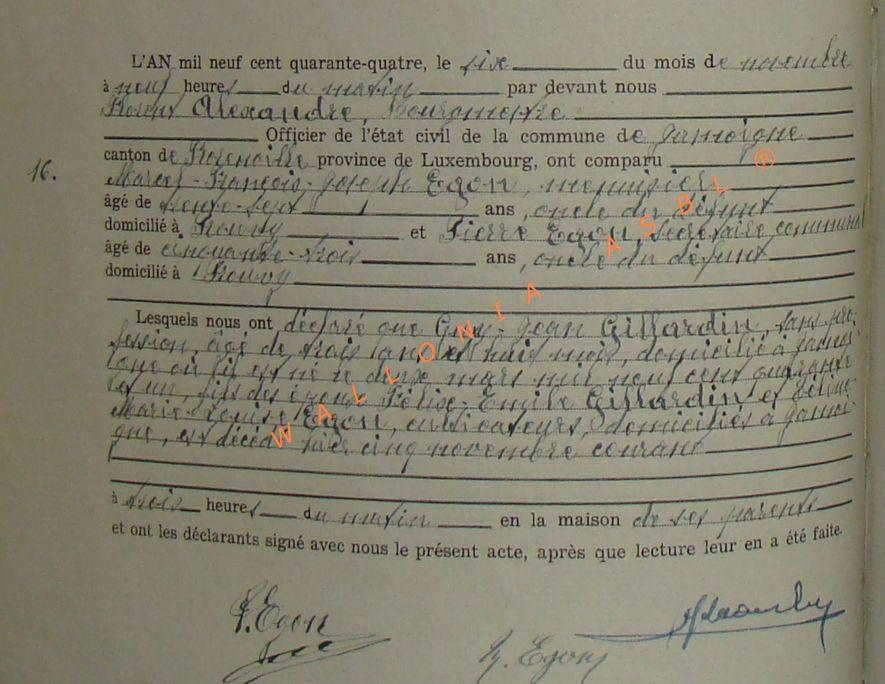 L'AN mil neuf cent quarante-quatre, le six du mois de novembre
à neuf heures du matin par devant nous
Florent Alexandre, Bourgmestre
Officier de l'état civil de la commune de Jamoigne
canton de Florenville province de Luxembourg, ont comparu
16.
Marcel-François-Joseph Egon, menuisier
âgé de trente-sept ans, oncle du défunt
domicilié à et Pierre Egon, secrétaire communal
âgé de cinquante-trois ans, oncle du défunt
domicilié à
Lesquels nous ont déclaré que Guy-Jean Gillardin, sans pro-
fession, âgé de trois ans et huit mois, domicilié à Jamoi-
gne où il est né le deux mars mil neuf cent quarante
et un, fils des époux Félix-Emile Gillardin et
Marie-Louise Egon, cultivateurs, domiciliés à Jamoi-
gne, est décédé hier cinq novembre courant
à trois heures du matin en la maison de ses parents
et ont les déclarants signé avec nous le présent acte, après que lecture leur en a été faite.
P. Egon
M. Egon
WALLONIA ASBL ®